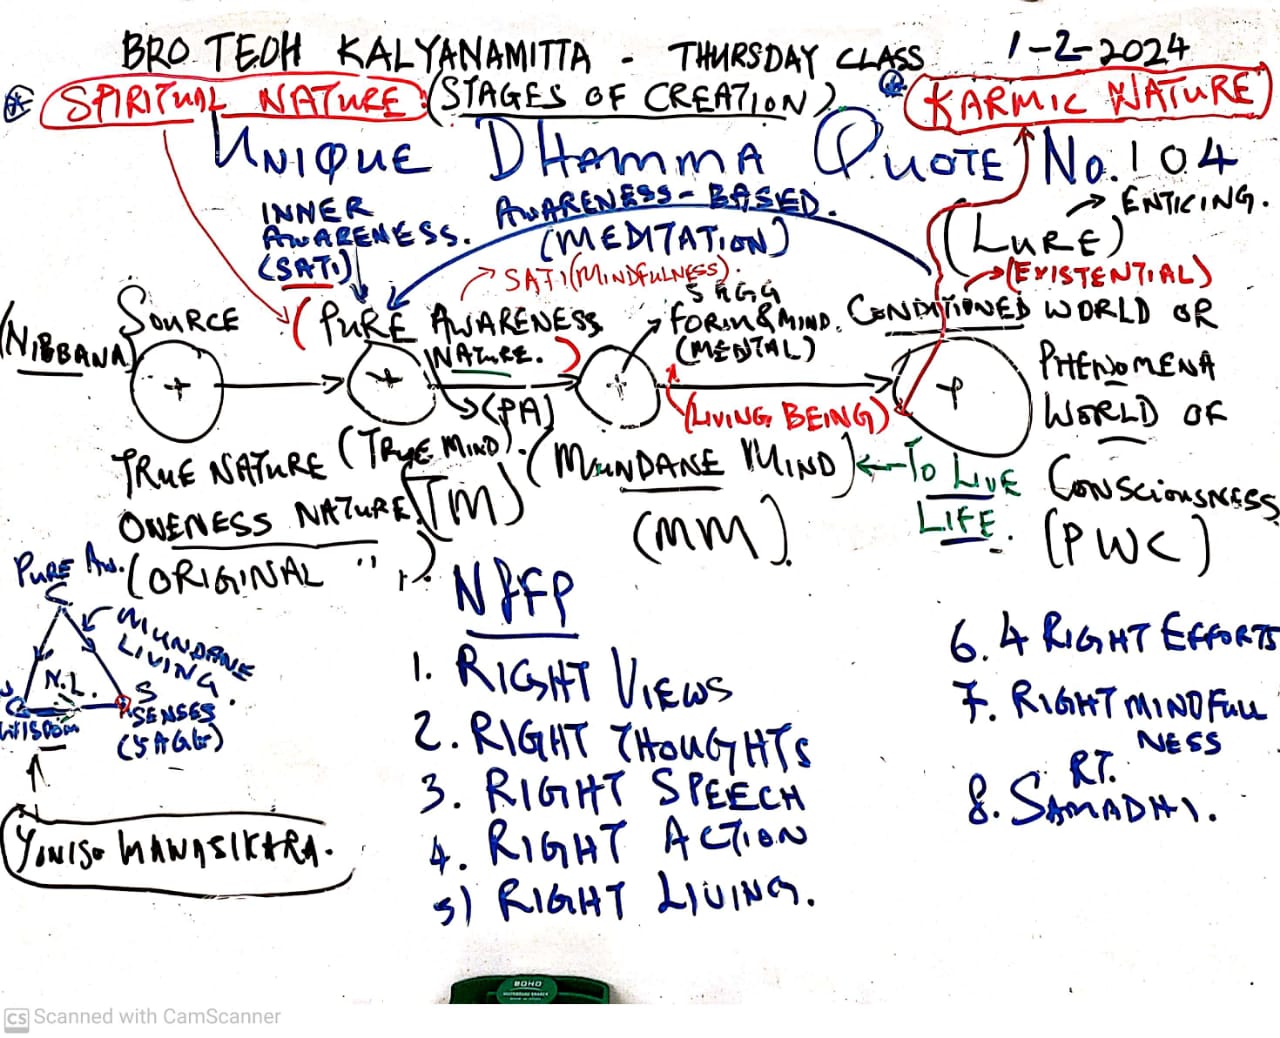 BRO TEOH KALYANAMITTA - THURSDAY CLASS 1-2-2024
SPIRITUAL NATURE (STAGES OF CREATION) KARMIC NATURE
UNIQUE DHAMMA QUOTE No. 104
INNER AWARENESS. (SATI)
AWARENESS-BASED. (MEDITATION)
(LURE) → ENTICING.
→ (EXISTENTIAL)
→ SATI (MINDFULNESS).
(NIBBANA)
SOURCE
(PURE AWARENESS NATURE.)
5AGG
FORM & MIND.
(MENTAL)
CONDITIONED WORLD OR
PHENOMENA
WORLD OF
CONSCIOUSNESS
(PWC)
→ (PA)
(LIVING BEING)
TRUE NATURE
ONENESS NATURE
(ORIGINAL " ").
(TRUE MIND).
(TM)
(MUNDANE MIND)
(MM)
← TO LIVE
LIFE.
PURE AW.
MUNDANE
LIVING.
N.L.
WISDOM
S
SENSES
(5AGG)
YONISO MANASIKARA.
N8FP
1. RIGHT VIEWS
2. RIGHT THOUGHTS
3. RIGHT SPEECH
4. RIGHT ACTION
5) RIGHT LIVING.
6. 4 RIGHT EFFORTS
7. RIGHT MINDFULL
NESS
8. RT. SAMADHI.
BOHO
CS Scanned with CamScanner